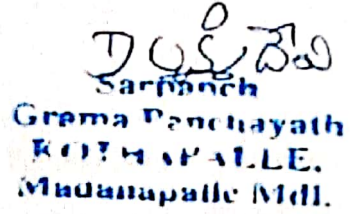 D లక్ష్మీ దేవి
Sarpanch
Grama Panchayath
KOTHAPALLE.
Madanapalle Mdl.